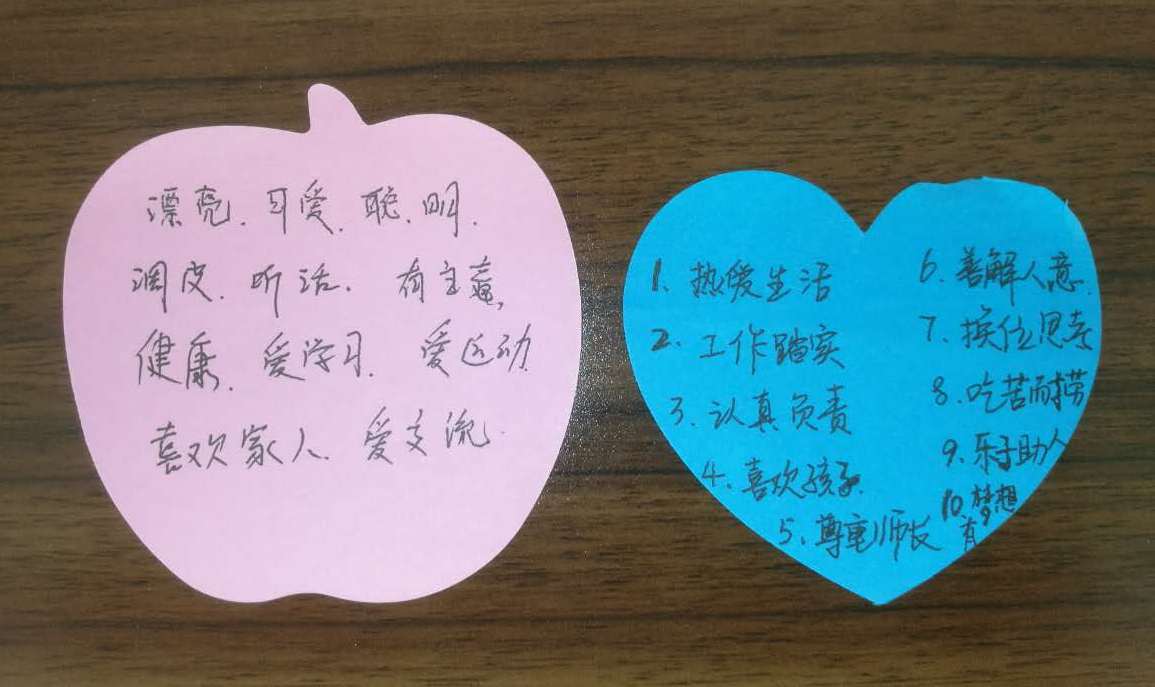 漂亮、可爱、聪明、
调皮、听话、有主意,
健康、爱学习、爱运动
喜欢家人、爱交流.
1、热爱生活
2、工作踏实
3、认真负责
4、喜欢孩子
5、尊重师长
6、善解人意.
7、换位思考
8、吃苦耐劳
9、乐于助人
10、有梦想